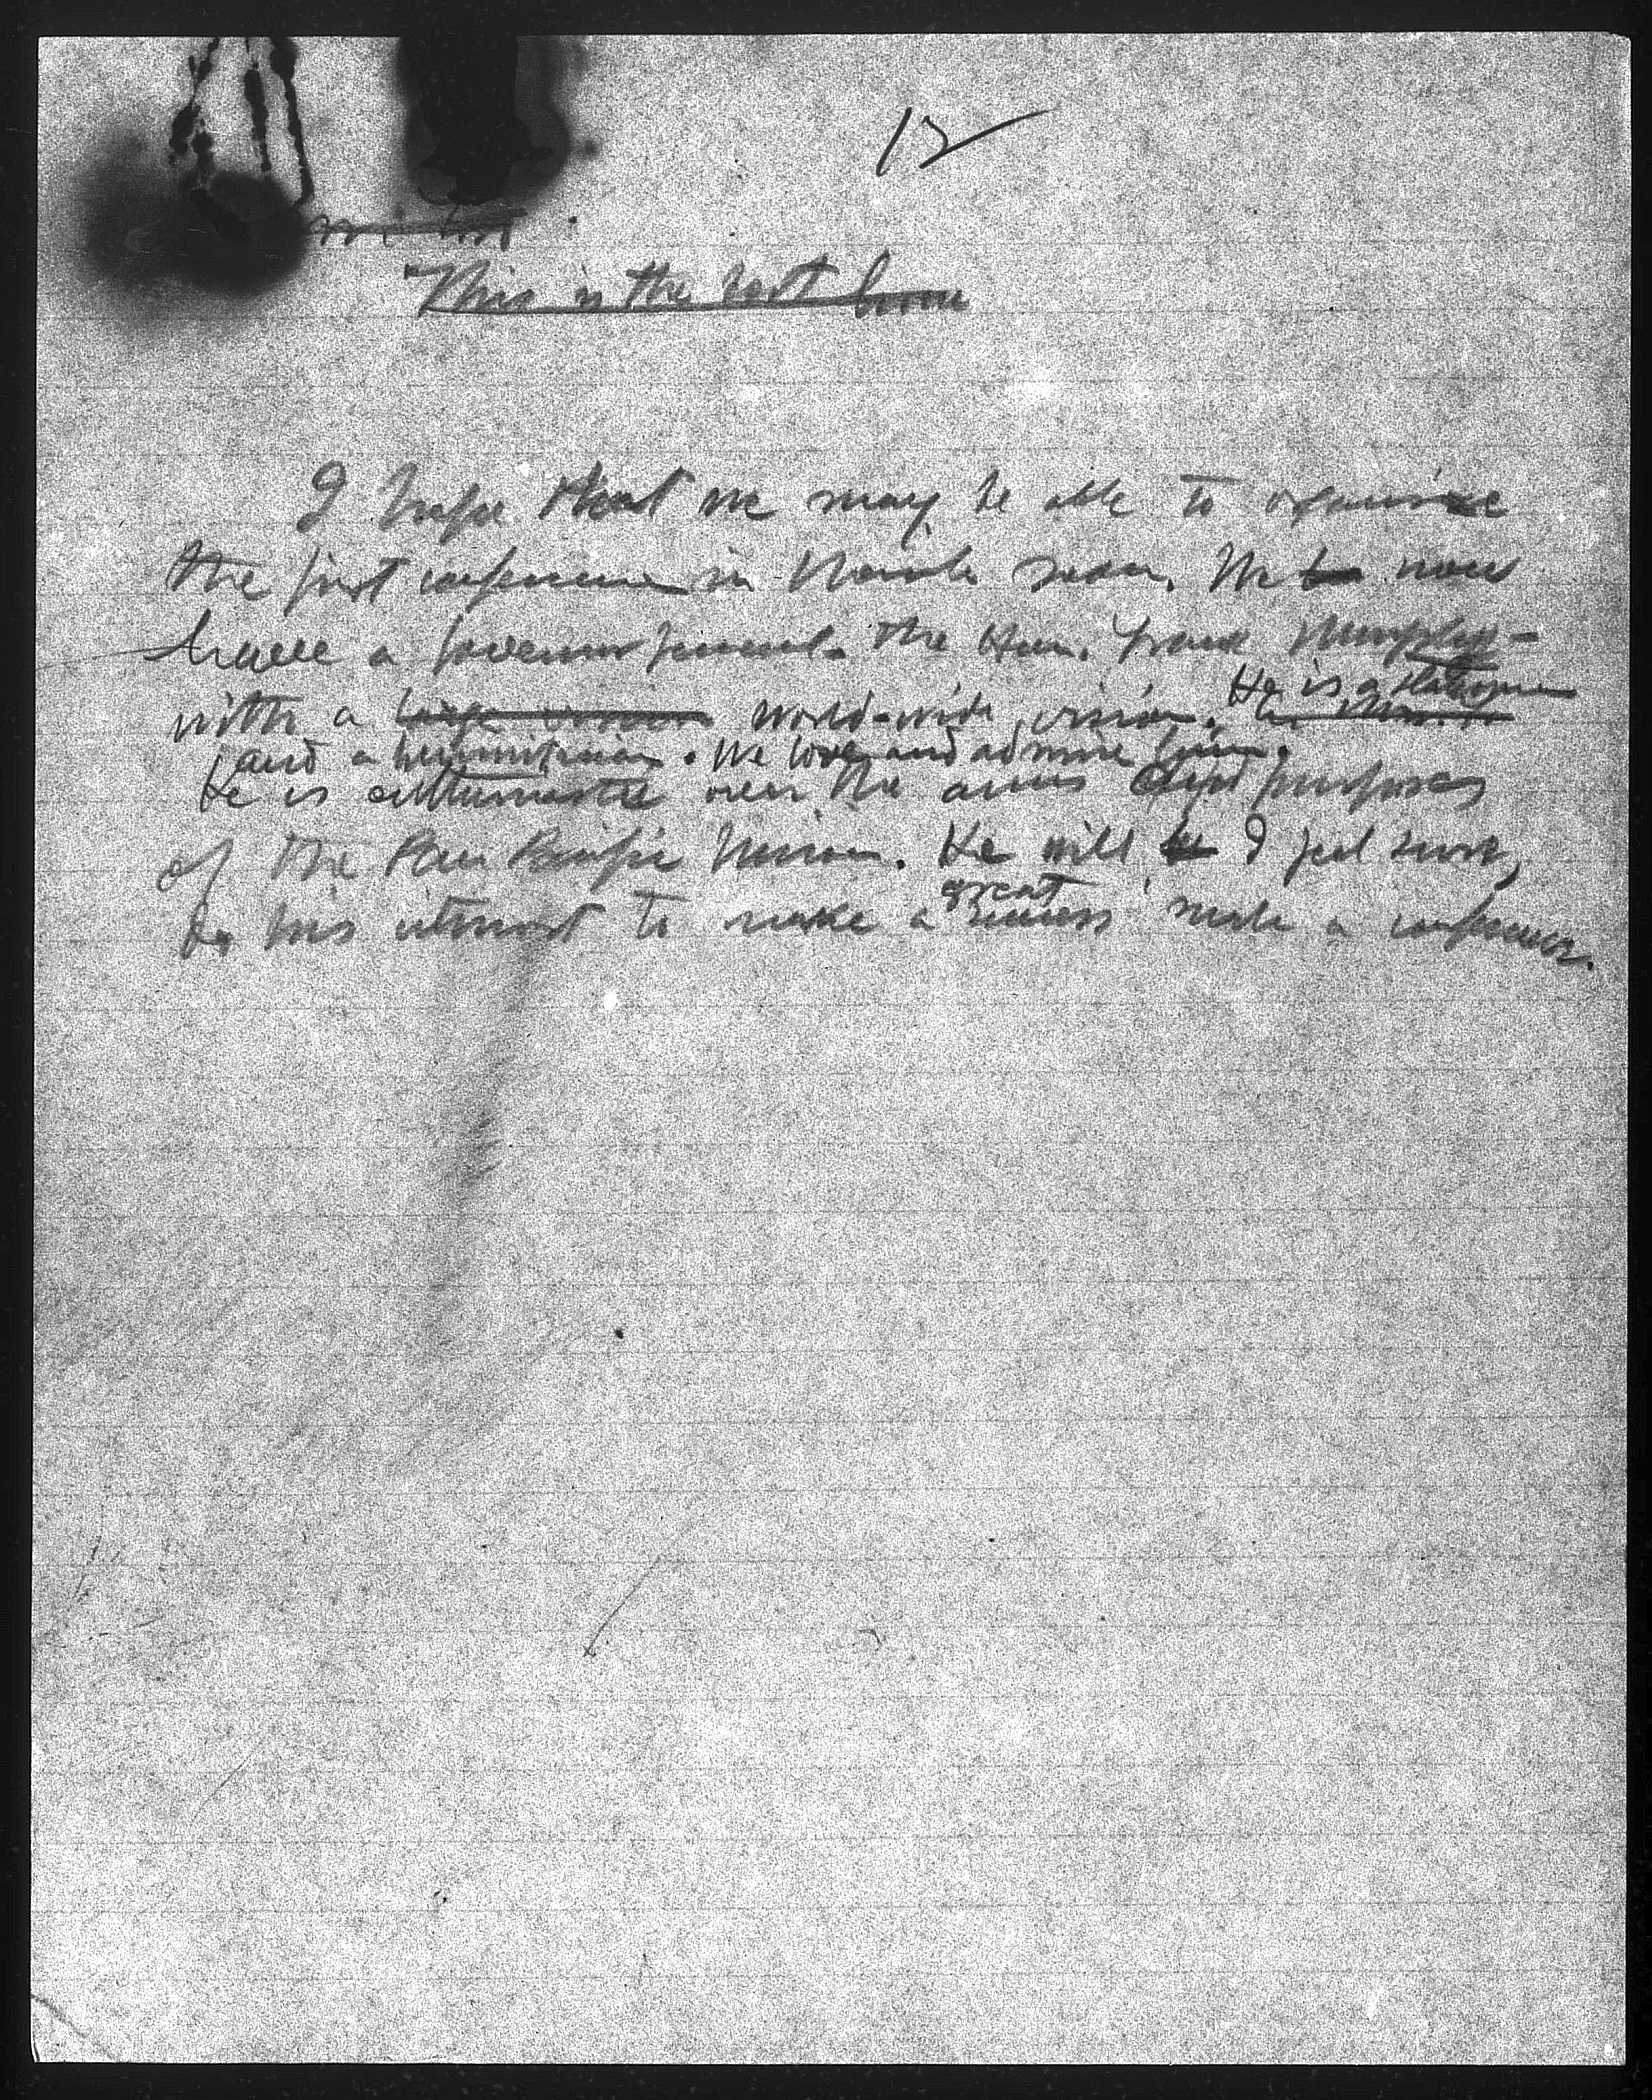 12
This is the best home
I hope that we may be able to organize
the first conference in Manila soon. We now
have a Governor General - the Hon. Frank Murphy -
with a large vision world-wide vision. He is a statesman
and a humanitarian. We love and admire him.
He is enthusiastic over the aims and purposes
of the Pan Pacific Union. He will I feel sure,
do his utmost to make a great success such a conference.